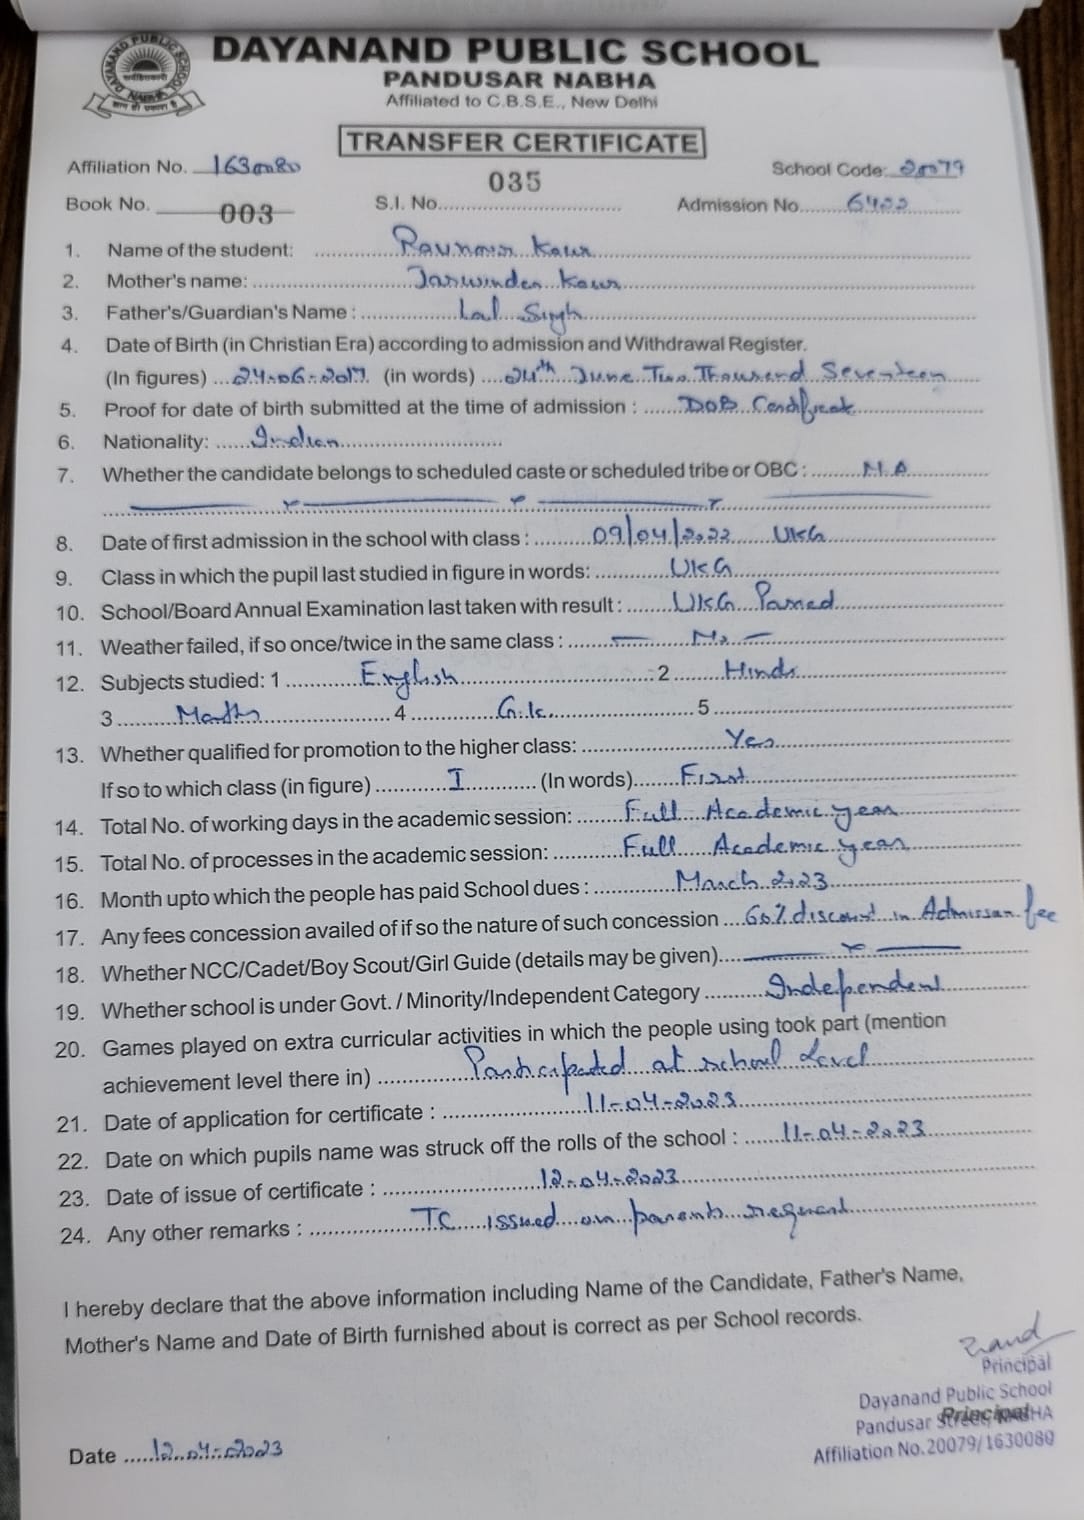 DAYANAND PUBLIC SCHOOL
PANDUSAR NABHA
Affiliated to C.B.S.E., New Delhi
TRANSFER CERTIFICATE
Affiliation No. 1630080 School Code: 20079
035
Book No. 003 S.I. No. Admission No. 6400
1. Name of the student: Kaur
2. Mother's name: Jaswinder Kaur
3. Father's/Guardian's Name : Lal Singh
4. Date of Birth (in Christian Era) according to admission and Withdrawal Register.
(In figures) 24-06-2017 (in words) 24th June Two Thousand Seventeen
5. Proof for date of birth submitted at the time of admission : DOB Certificate
6. Nationality: Indian
7. Whether the candidate belongs to scheduled caste or scheduled tribe or OBC : N.A
8. Date of first admission in the school with class : 09/04/2022 UKG
9. Class in which the pupil last studied in figure in words: UKG
10. School/Board Annual Examination last taken with result : UKG Passed
11. Weather failed, if so once/twice in the same class : — No —
12. Subjects studied: 1 English 2 Hindi
3 Maths 4 G.k. 5
13. Whether qualified for promotion to the higher class: Yes
If so to which class (in figure) I (In words) First
14. Total No. of working days in the academic session: Full Academic year
15. Total No. of processes in the academic session: Full Academic year
16. Month upto which the people has paid School dues : March 2023
17. Any fees concession availed of if so the nature of such concession 60% discount in Admission fee
18. Whether NCC/Cadet/Boy Scout/Girl Guide (details may be given)
19. Whether school is under Govt. / Minority/Independent Category Independent
20. Games played on extra curricular activities in which the people using took part (mention
achievement level there in) Participated at school Level
21. Date of application for certificate : 11-04-2023
22. Date on which pupils name was struck off the rolls of the school : 11-04-2023
23. Date of issue of certificate : 12-04-2023
24. Any other remarks : TC issued on parents request
I hereby declare that the above information including Name of the Candidate, Father's Name,
Mother's Name and Date of Birth furnished about is correct as per School records.
Principal
Dayanand Public School
Pandusar Street, NABHA
Principal
Affiliation No.20079/1630080
Date 12-04-2023